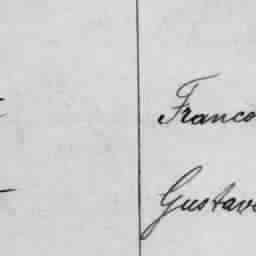 Franco
Gustav